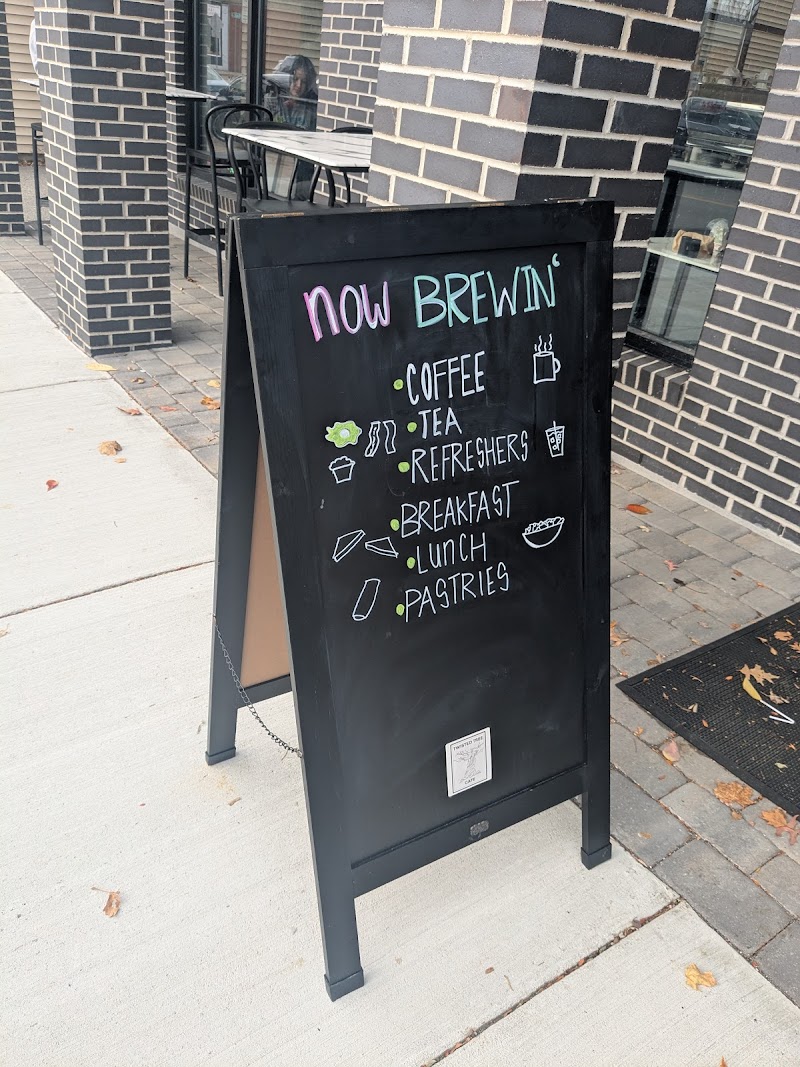 NOW BREWIN'
• COFFEE
• TEA
• REFRESHERS
• BREAKFAST
• LUNCH
• PASTRIES
TWISTED TREE
CAFE